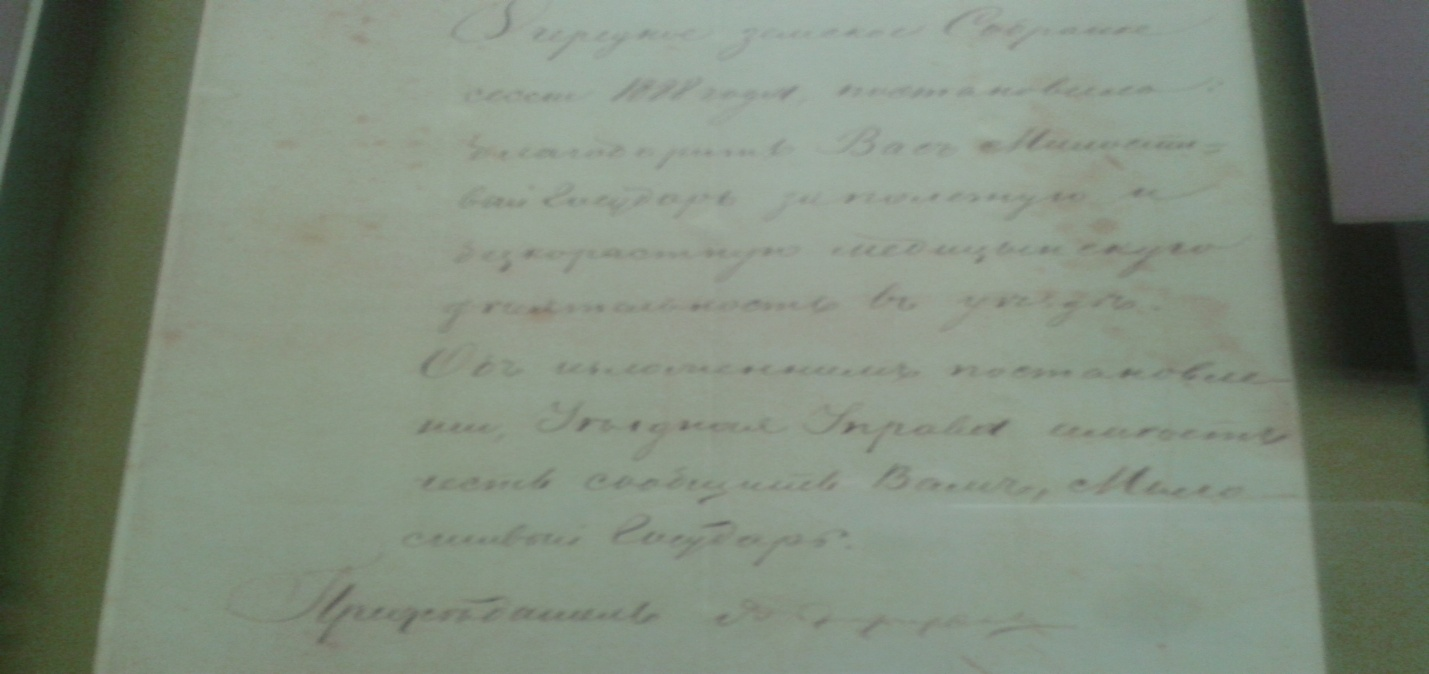 Очередное земское Собрание
сессии 1888 года, постановило:
благодарить Васъ Милости-
вый Государь за полезную и
безкорыстную медицинскую
дѣятельность въ уѣздѣ.
Объ изложенномъ постановле-
нии, Уѣздная Управа имѣетъ
честь сообщить Вамъ, Мило
стивый Государь.
Предсѣдатель